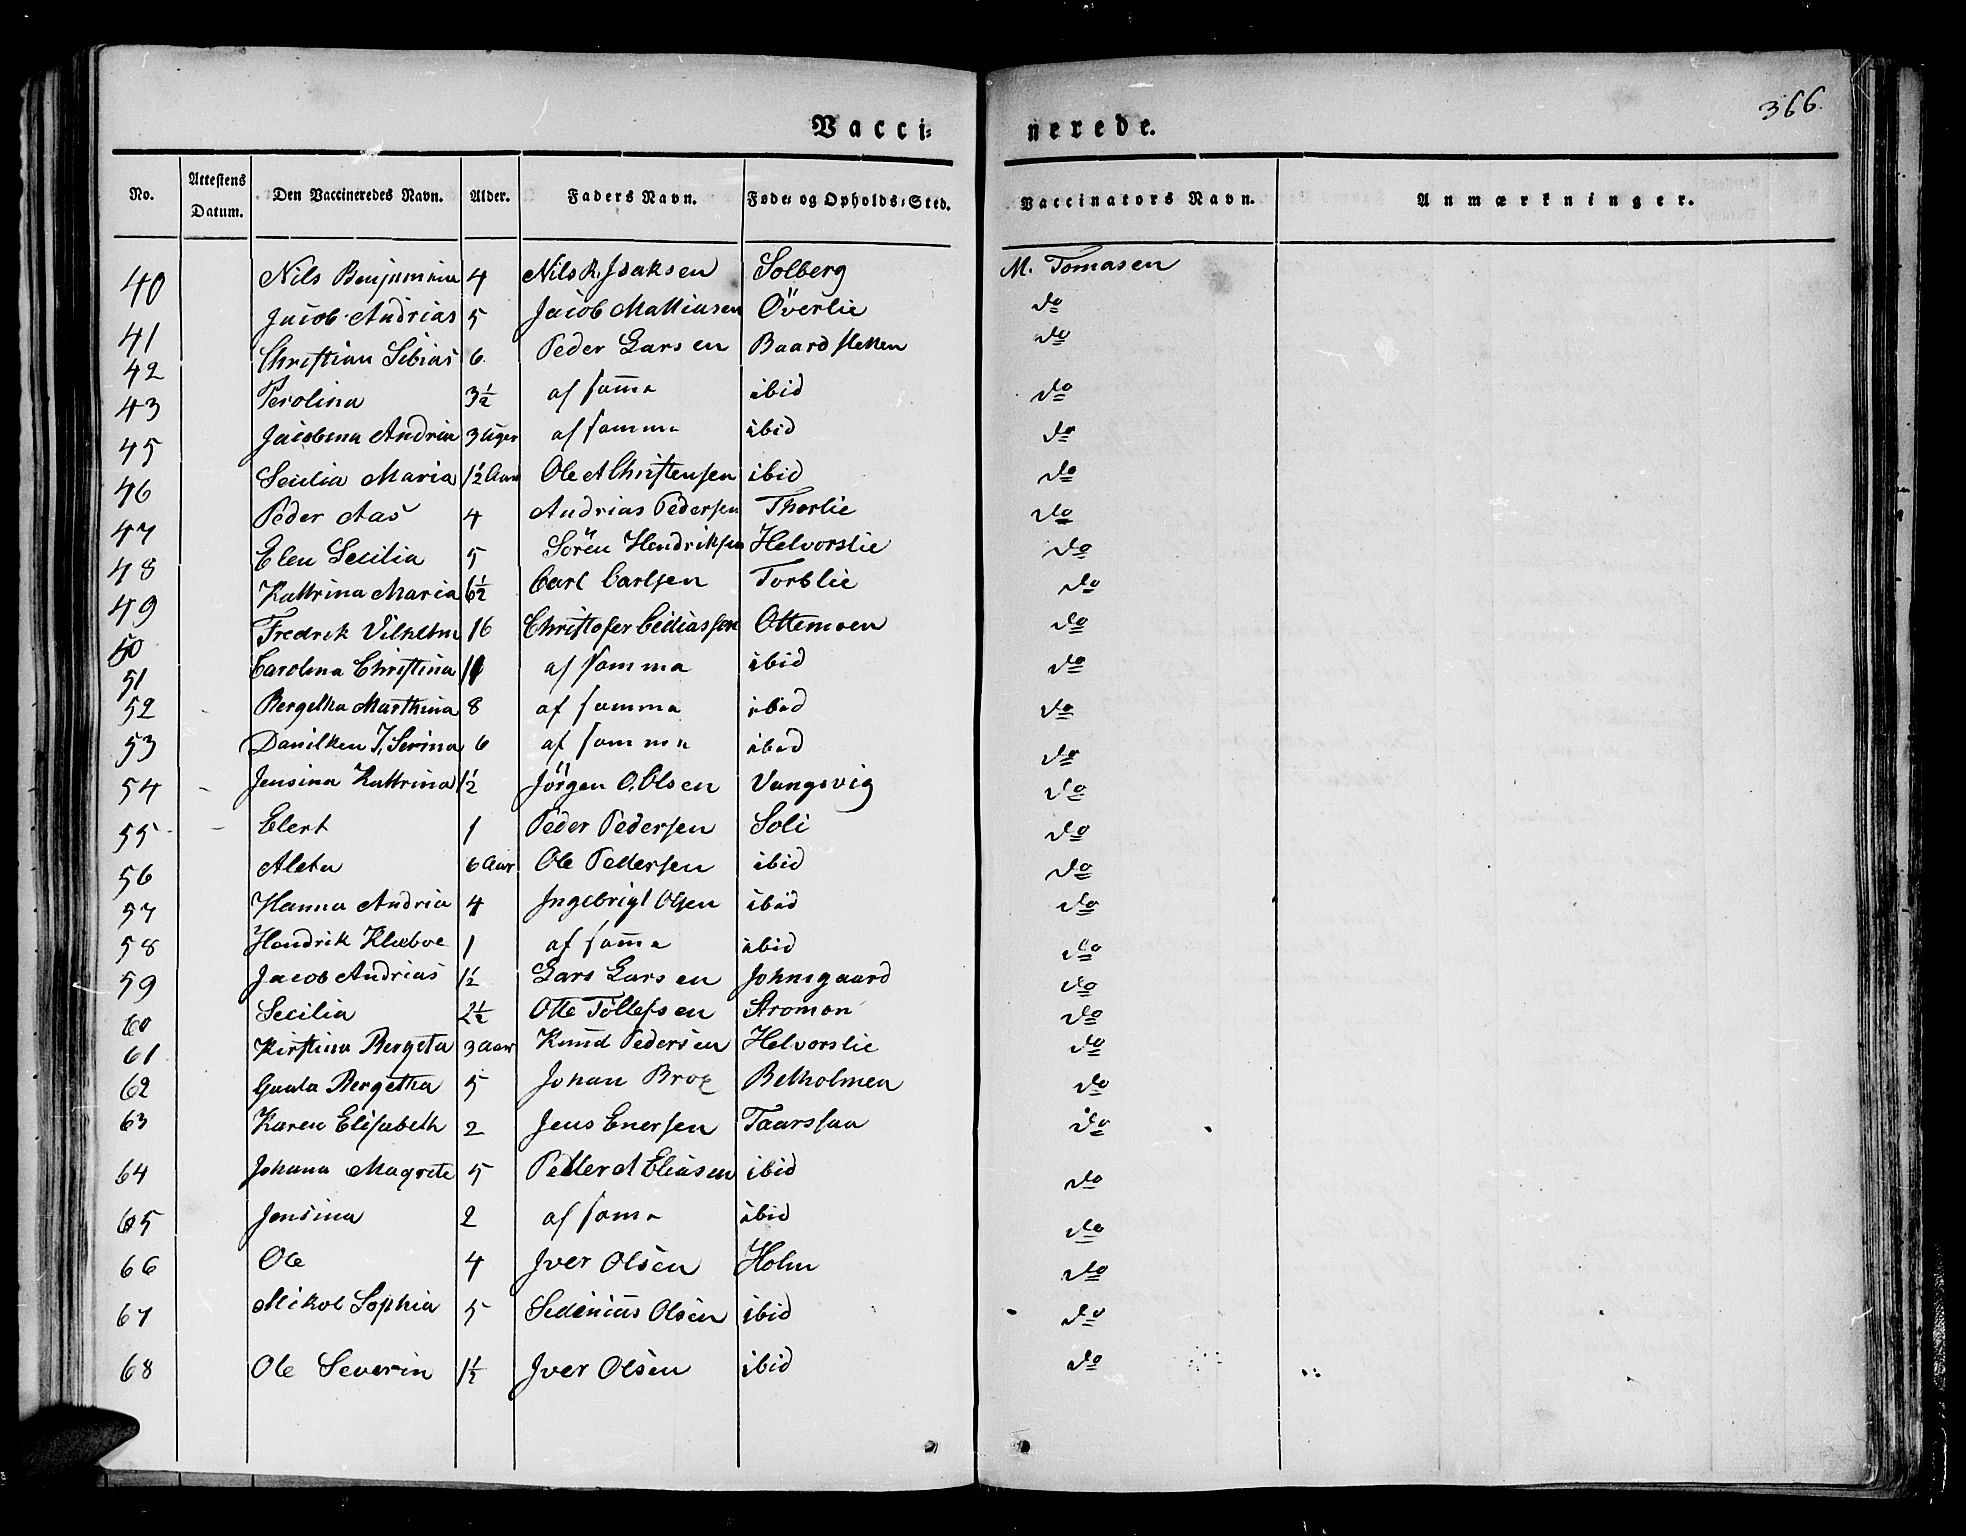 366.
Vacci= nerede.
No. Attestens Datum. Den Vaccineredes Navn. Alder. Faders Navn. Føde= og Opholds=Sted. Vaccinators Navn. Anmærkninger.
40 Nils Benjaminn 4 Nils R. Isaksen Solberg M. Tomasen
41 Jacob Andrias 5 Jacob Mathiasen Överlie do
42 Christian Tobias 6 Peder Larsen Baardsletten do
43 Perolina 3½ af samma ibid do
45 Jacobina Andria 3 Uger af samma ibid do
46 Secilia Maria 1½ Aar Ole A Christensen ibid do
47 Peder Aas 4 Andrias Pedersen Thorlie do
48 Elen Secilia 5 Sören Hendriksen Helvorslie do
49 Kattrina Maria 6½ Carl Carlsen Torblie do
50 Fredrik Vilhelm 16 Christofer Ottemoen do
51 Carolina Christina 11 af samma ibid do
52 Bergetha Marthina 8 af samma ibid do
53 Danilken J. Serina 6 af samma ibid do
54 Jensina Kattrina 1½ Jörgen O. Olsen Vangsvig do
55 Elert 1 Peder Pedersen Soli do
56 Aleta 6 Aar Ole Pedersen ibid do
57 Hanna Andria 4 Ingebrigt Olsen ibid do
58 Hendrik Klæboe 1 af samma ibid do
59 Jacob Andrias 1½ Lars Larsen Johnsgaard do
60 Secilia 2½ Otte Töllefsen Stromen do
61 Kirstina Bergeta 3 Aar Knud Pedersen Helvorslie do
62 Bergetha 5 Johan Brox Betholmen do
63 Karen Elisabeth 2 Jens Enersen Taarssaa do
64 Johana Magrete 5 Petter A Eliasen ibid do
65 Jensina 2 af sama ibid do
66 Ole 4 Iver Olsen Holm do
67 Nikol Sophia 5 Sedenius Olsen ibid do
68 Ole Severin 1½ Iver Olsen ibid do